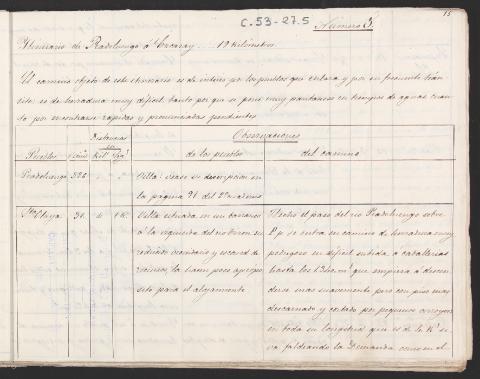 15
C.-53-27.5
Número 3.
Itinerario de Pradoluengo á Ezcaray... 19 kilómetros
El camino objeto de este itinerario es de interés por los pueblos que enlaza y por su frecuente trán
sito: es de herradura muy difícil tanto por que se pone muy pantanoso en tiempos de aguas cuan
to por encontrarse rápidas y pronunciadas pendientes.
Distancias
en
Observaciones
Pueblos
Kil.s
de los pueblos
del camino
Pradoluengo
Villa: véase su descripción en
la página 26 del
Sta. Olaya
Villa situada en un barranco
á la izquierda del rio
reducido vecindario y escased de
recursos, la hacen poco apropo
sito para el alojamiento
Hecho el paso del rio Pradoluengo sobre
se entra en camino de herradura muy
pedregoso en difícil subida á caballerias
hasta los que empieza á descen
derse mas suavemente pero con piso mas
descarnado y cortado por pequeños arroyos
en toda su longitud que es de 4 K.s se
va faldeando la Demanda como en el